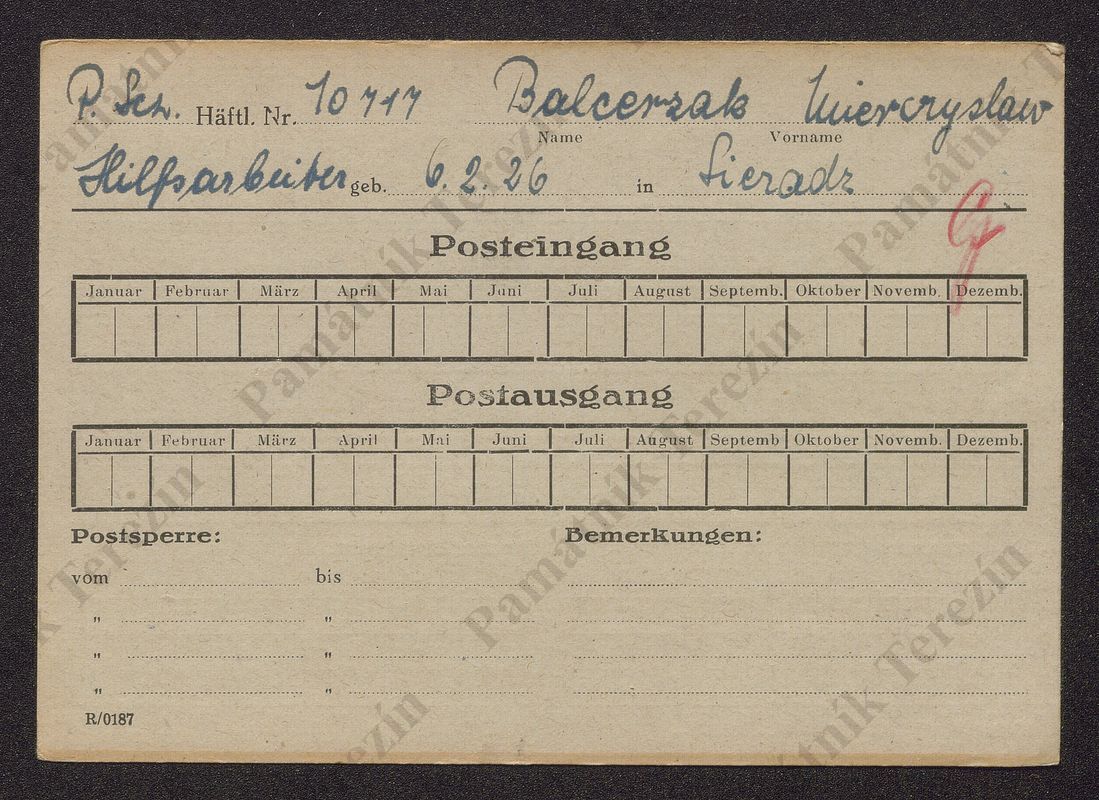 P. Sch. Häftl. Nr. 10717 Balcerzak Miercryslaw
Name Vorname
Hilfsarbeiter geb. 6. 2. 26 in Sieradz
Posteingang
Januar Februar März April Mai Juni Juli August Septemb. Oktober Novemb. Dezemb.
Postausgang
Januar Februar März April Mai Juni Juli August Septemb Oktober Novemb. Dezemb.
Postsperre: Bemerkungen:
vom bis
" "
" "
" "
R/0187
Památník Terezín